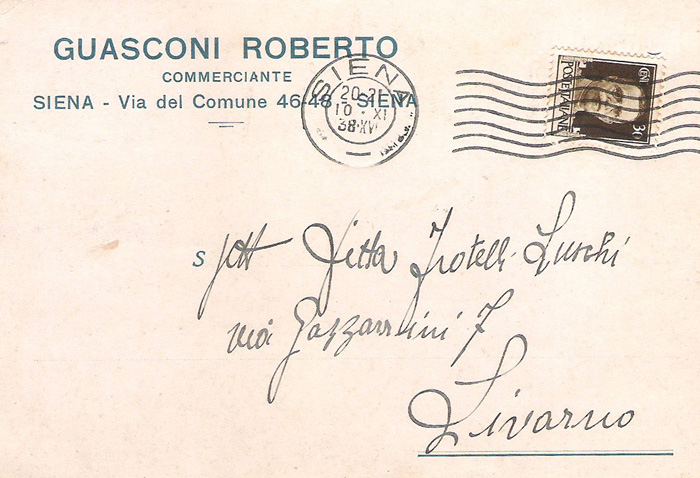 GUASCONI ROBERTO
COMMERCIANTE
SIENA - Via del Comune 46-48 - SIENA
SIENA
20-21
10·XI
38·XV
POSTE ITALIANE
30
CENT
Spett Ditta Fratelli Luschi
via Gazzarrini 7
Livorno